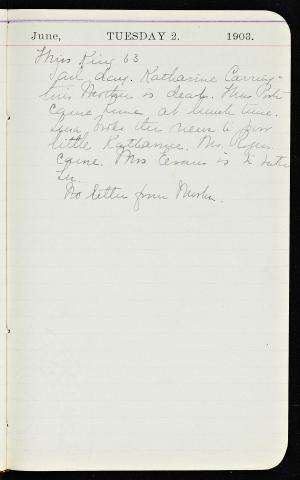 June, TUESDAY 2. 1903.
Miss King 63
Sad day. Katharine Carring-
ton's Mother is dead. Miss
came home at lunch time.
broke the news to poor
little Katharine. Mr. Rogers
came. Mrs is
No letter from